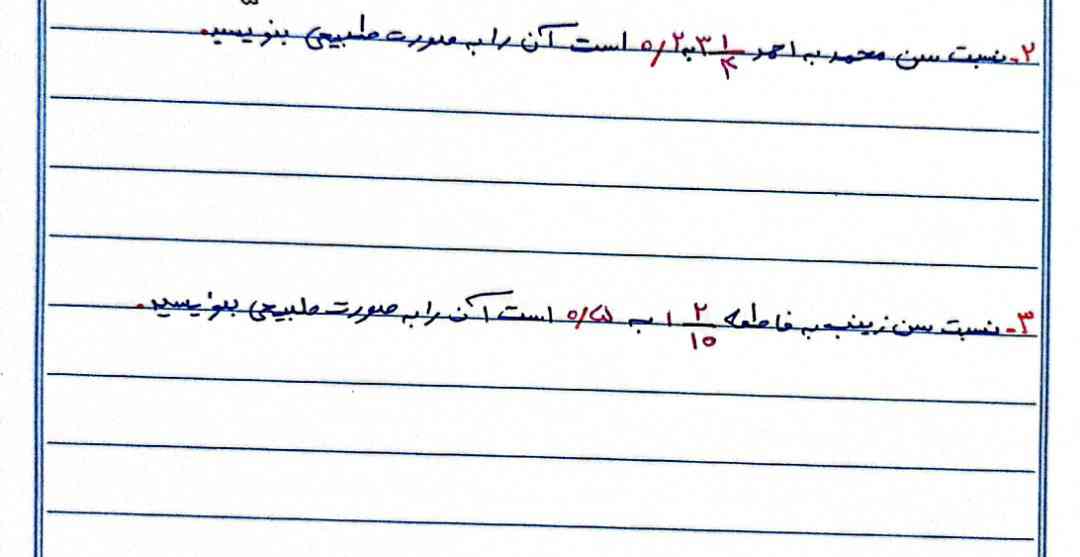 ۲- نسبت سن محمد به احمد ۳ ۱/۴ به ۰/۲ است آن را به صورت طبیعی بنویسید.
۳- نسبت سن زینب به فاطمه ۱ ۲/۱۰ به ۰/۵ است آن را به صورت طبیعی بنویسید.